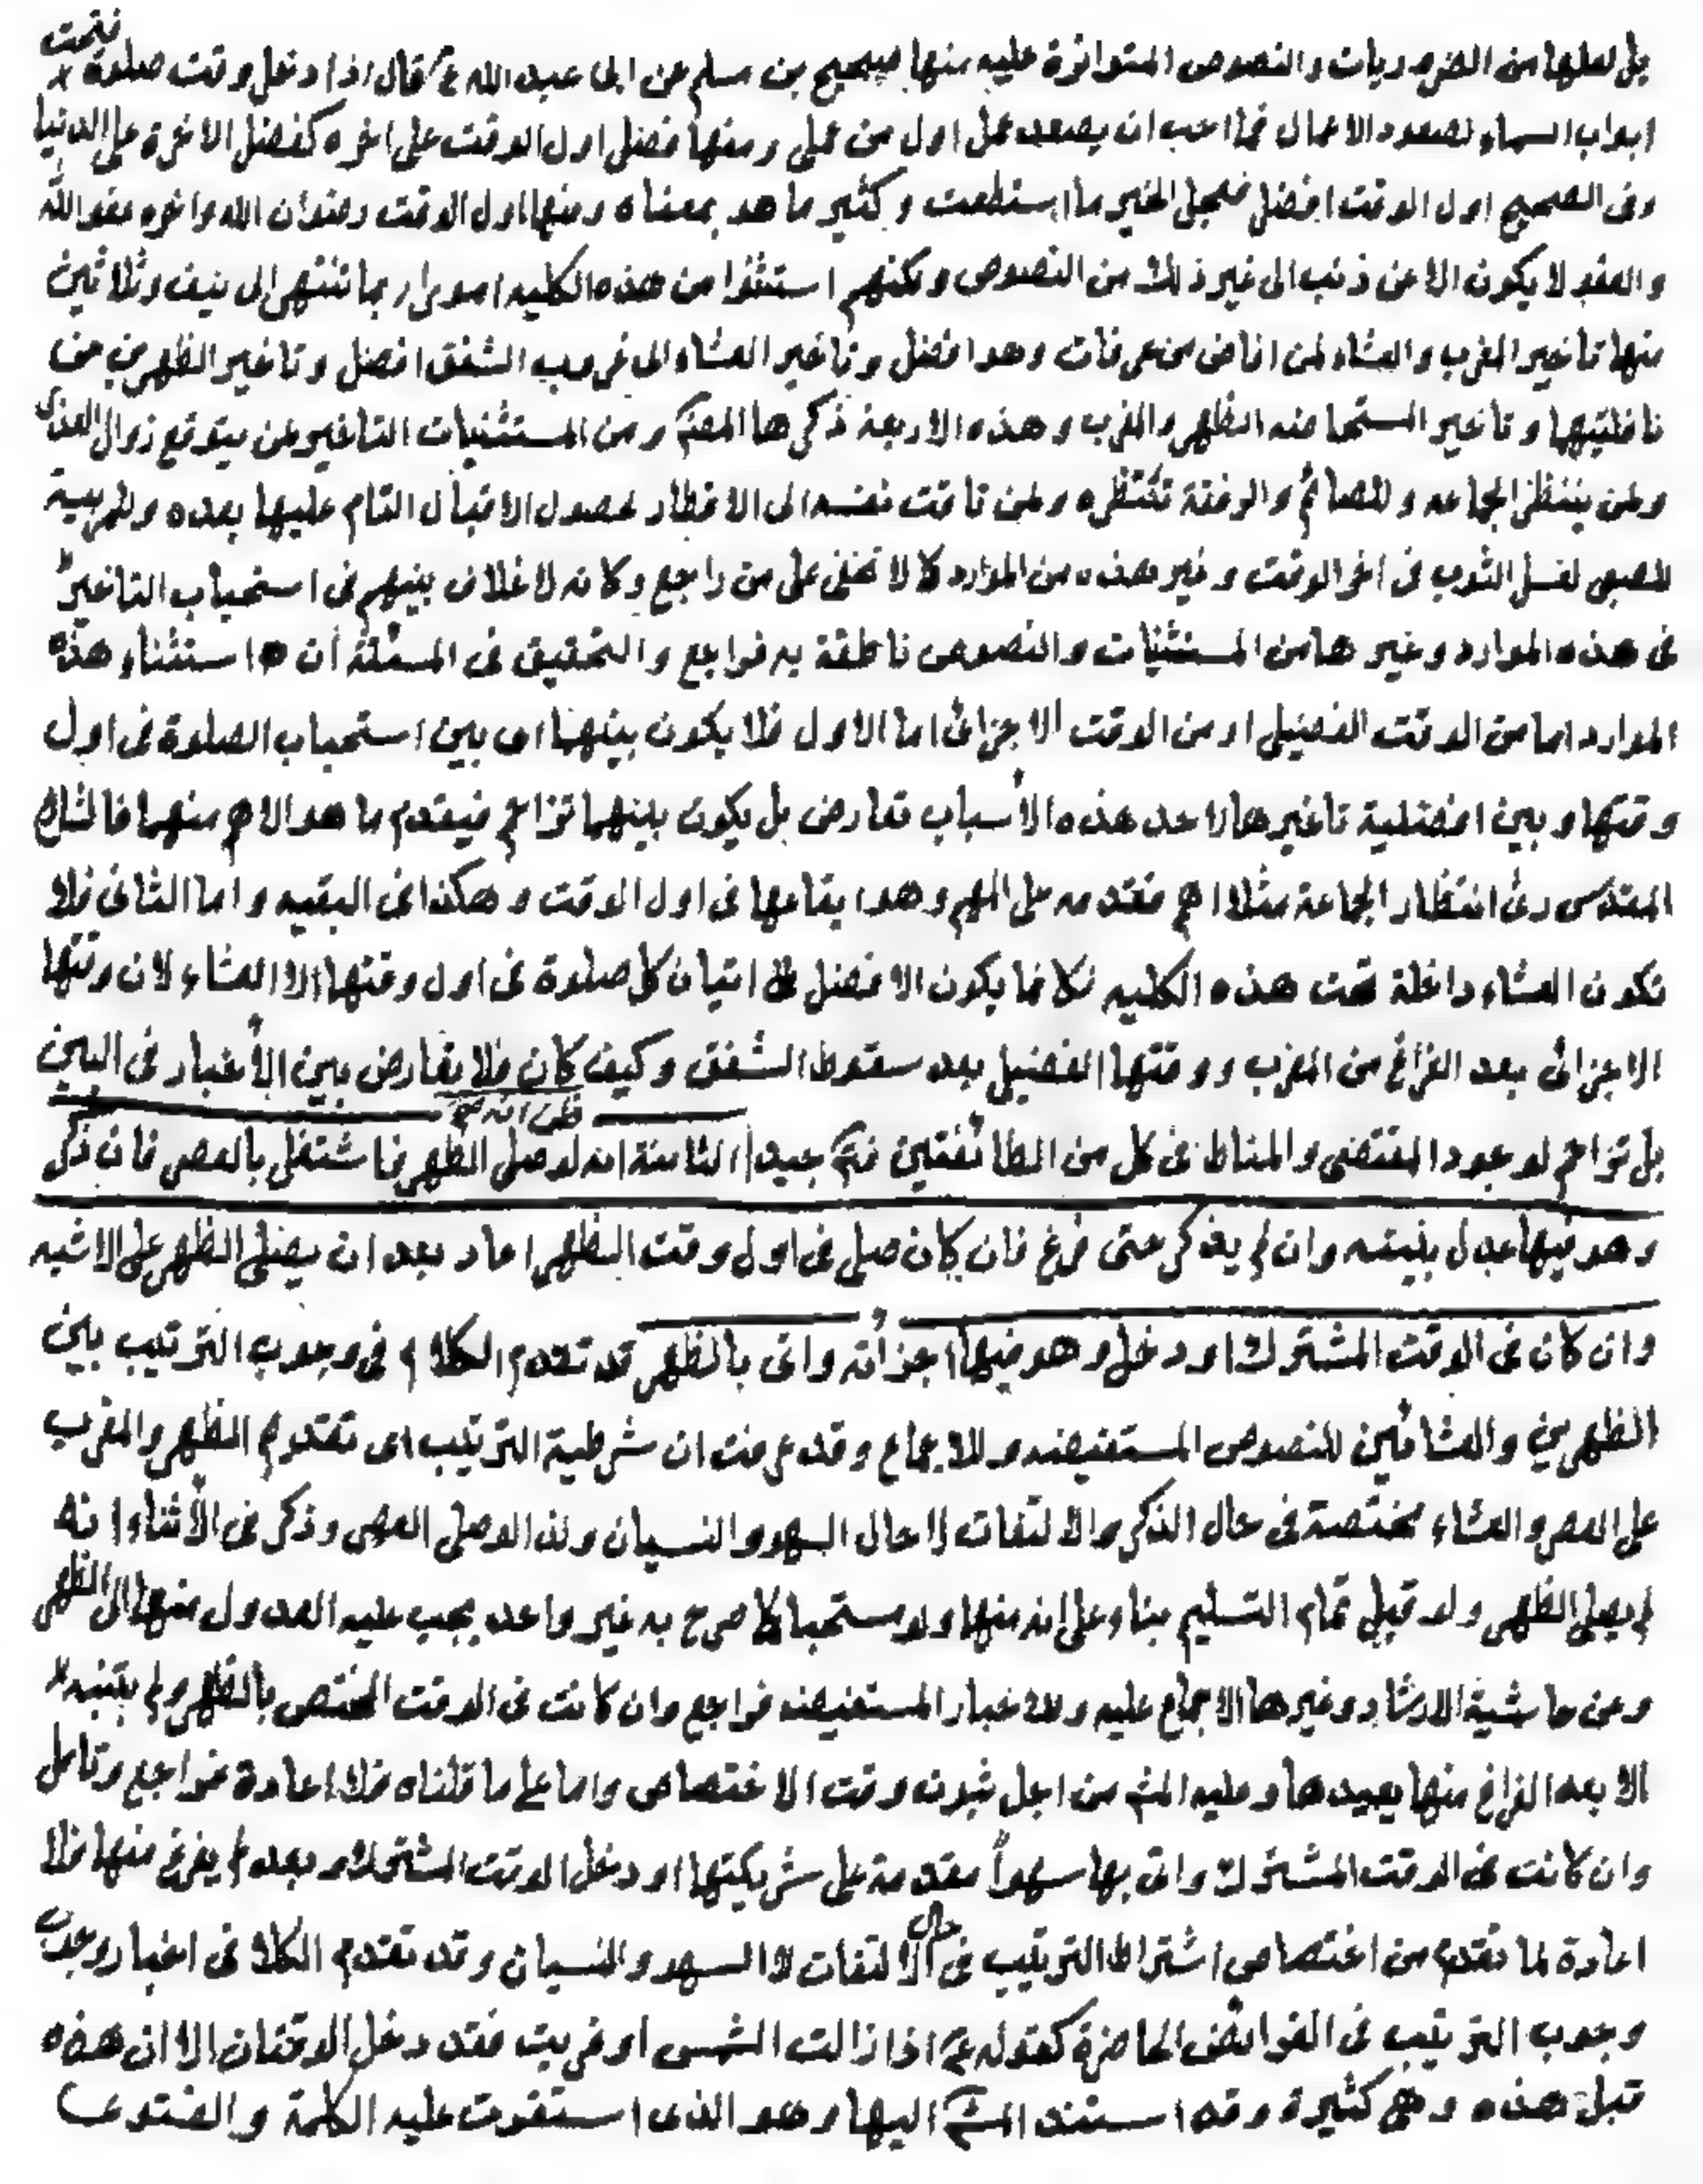 بل لعلها من الضروريات والنصوص المتواترة عليه منها صحيح بن مسلم عن ابى عبد الله ع قال اذا دخل وقت صلوة فتحت
ابواب السماء لصعود الاعمال فما احب ان يصعد عمل اول من عملى ومنها فضل اول الوقت على اخره كفضل الاخرة على الدنيا
وفى الصحيح اول الوقت افضل فعجل الخير ما استطعت وكثير ما هو بمعناه ومنها اول الوقت رضوان الله واخره عفو الله
والعفو لا يكون الا عن ذنب الى غير ذلك من النصوص ولكنهم استثنوا من هذه الكليه امورا ربما تنتهى الى نيف وثلاثين
منها تاخير المغرب والعشاء لمن افاض من عرفات وهو افضل وتاخير العشاء الى غروب الشفق افضل وتاخير الظهرين من
نافلتيهما وتاخير المستحاضه الظهر والمغرب وهذه الاربعة ذكرها المص ومن المستثنيات التاخير لمن يتوقع زوال العذر
ولمن ينتظر الجماعه وللصائم والرفقة تنتظره ولمن تاقت نفسه الى الافطار لحصول الاقبال التام عليها بعده وللمربية
للصبى لغسل الثوب فى اخر الوقت وغير هذه من الموارد كما لا تخفى على من راجع وكانه لا خلاف بينهم فى استحباب التاخير
فى هذه الموارد وغيرها من المستثنيات والنصوص ناطقة به فراجع والتحقيق فى المسئلة أن استثناء هذه
الموارد اما من الوقت الفضيلى او من الوقت الاجزائى اما الاول فلا يكون بينهما اى بين استحباب الصلوة فى اول
وقتها وبين افضلية تاخيرها لاحد هذه الأسباب تعارض بل يكون بينهما تزاحم فيقدم ما هو الاهم منهما فالشارع
المقدس رئ انتظار الجماعة مثلا اهم فقدمه على المهم وهو ايقاعها فى اول الوقت وهكذا فى البقيه واما الثانى فلا
تكون العشاء داخلة تحت هذه الكليه فكانما يكون الافضل اتيان كل صلوة فى اول وقتها الا العشاء لان وقتها
الاجزائى بعد الفراغ من المغرب ووقتها الفضيلى بعد سقوط الشفق وكيف كان فلا تعارض بين الأخبار فى البين
بل تزاحم لوجود المقتضى والمناط فى كل من الطائفتين فت جيدا الثامنة انه لو صلى الظهر فاشتغل بالعصر فان ذكر
وهو فيها عدل بنيته وان لم يذكر حتى فرغ فان كان صلى فى اول وقت الظهر اعاد بعد ان يصلى الظهر على الاشبه
وان كان فى الوقت المشترك او دخل وهو فيها اجزأته واتى بالظهر قد تقدم الكلام فى وجوب الترتيب بين
الظهرين والعشائين للنصوص المستفيضه وللاجماع وقد عرفت ان شرطية الترتيب اى تقدم الظهر والمغرب
على العصر والعشاء مختصة فى حال الذكر والالتفات لا حال السهو والنسيان ولذا لو صلى العصر وذكر فى الأثناء انه
لم يصلى الظهر ولو قبل تمام التسليم بناء على انه منها ولو مستحبا كما صرح به غير واحد يجب عليه العدول منها الى الظهر
وعن حاشية الارشاد وغيرها الاجماع عليه وللاخبار المستفيضه فراجع وان كانت فى الوقت المختص بالظهر ولم يتنبه
الا بعد الفراغ منها يعيدها وعليه المش من اجل ثبوت وقت الاختصاص واما على ما قلناه فلا اعادة فراجع وتامل
وان كانت فى الوقت المشترك واتى بها سهواً مقدمة على شريكتها او دخل الوقت المشترك وبعد لم يفرغ منها فلا
اعادة لما تقدم من اختصاص اشتراط الترتيب فى حال الالتفات لا السهو والنسيان وقد تقدم الكلا فى اخبار وجوب
وجوب الترتيب فى الفوائض الحاضرة كقوله ع اذا زالت الشمس او غربت فقد دخل الوقتان الا ان هذه
قبل هذه وهى كثيرة وقد استند المش اليها وهو الذى استقرت عليه الكلمة والفتوى